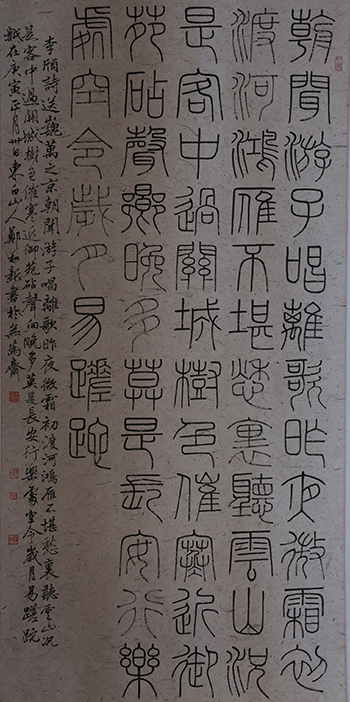 朝聞游子唱離歌昨夜微霜初
渡河鴻雁不堪愁裏聽雲山況
是客中過關城樹色催寒近御
苑砧聲嚮晚多莫是長安行樂
處空令歲月易蹉跎
李頎詩送巍萬之京朝聞游子唱離歌昨夜微霜初渡河鴻雁不堪愁裏聽雲山況
是客中過關城樹色催寒近御苑砧聲向晚多莫是長安行樂處空令歲月易蹉跎
歲在庚寅正月廿日東白山人鄭和新書於無為齋